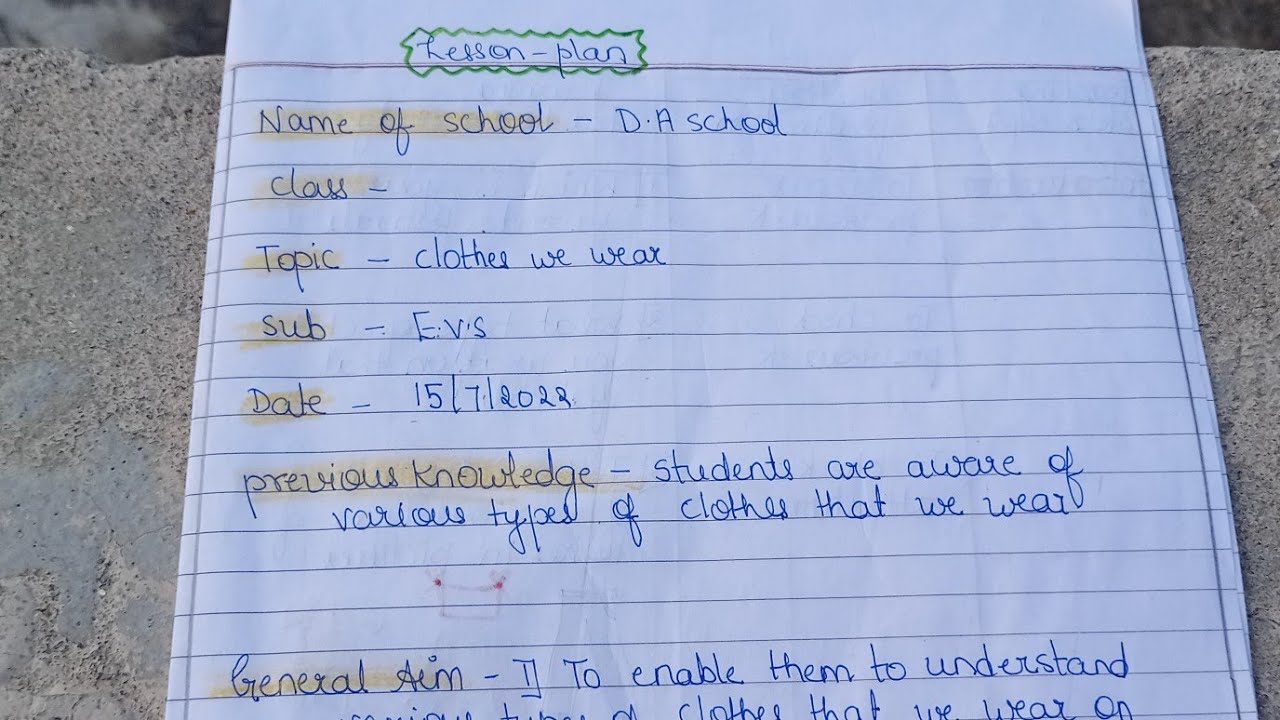 Lesson-plan
Name of school - D.A school
class -
Topic - clothes we wear
Sub - E.V.S
Date - 15/7/2022.
previous knowledge - students are aware of
various types of clothes that we wear
General Aim - I] To enable them to understand
various types of clothes that we wear on